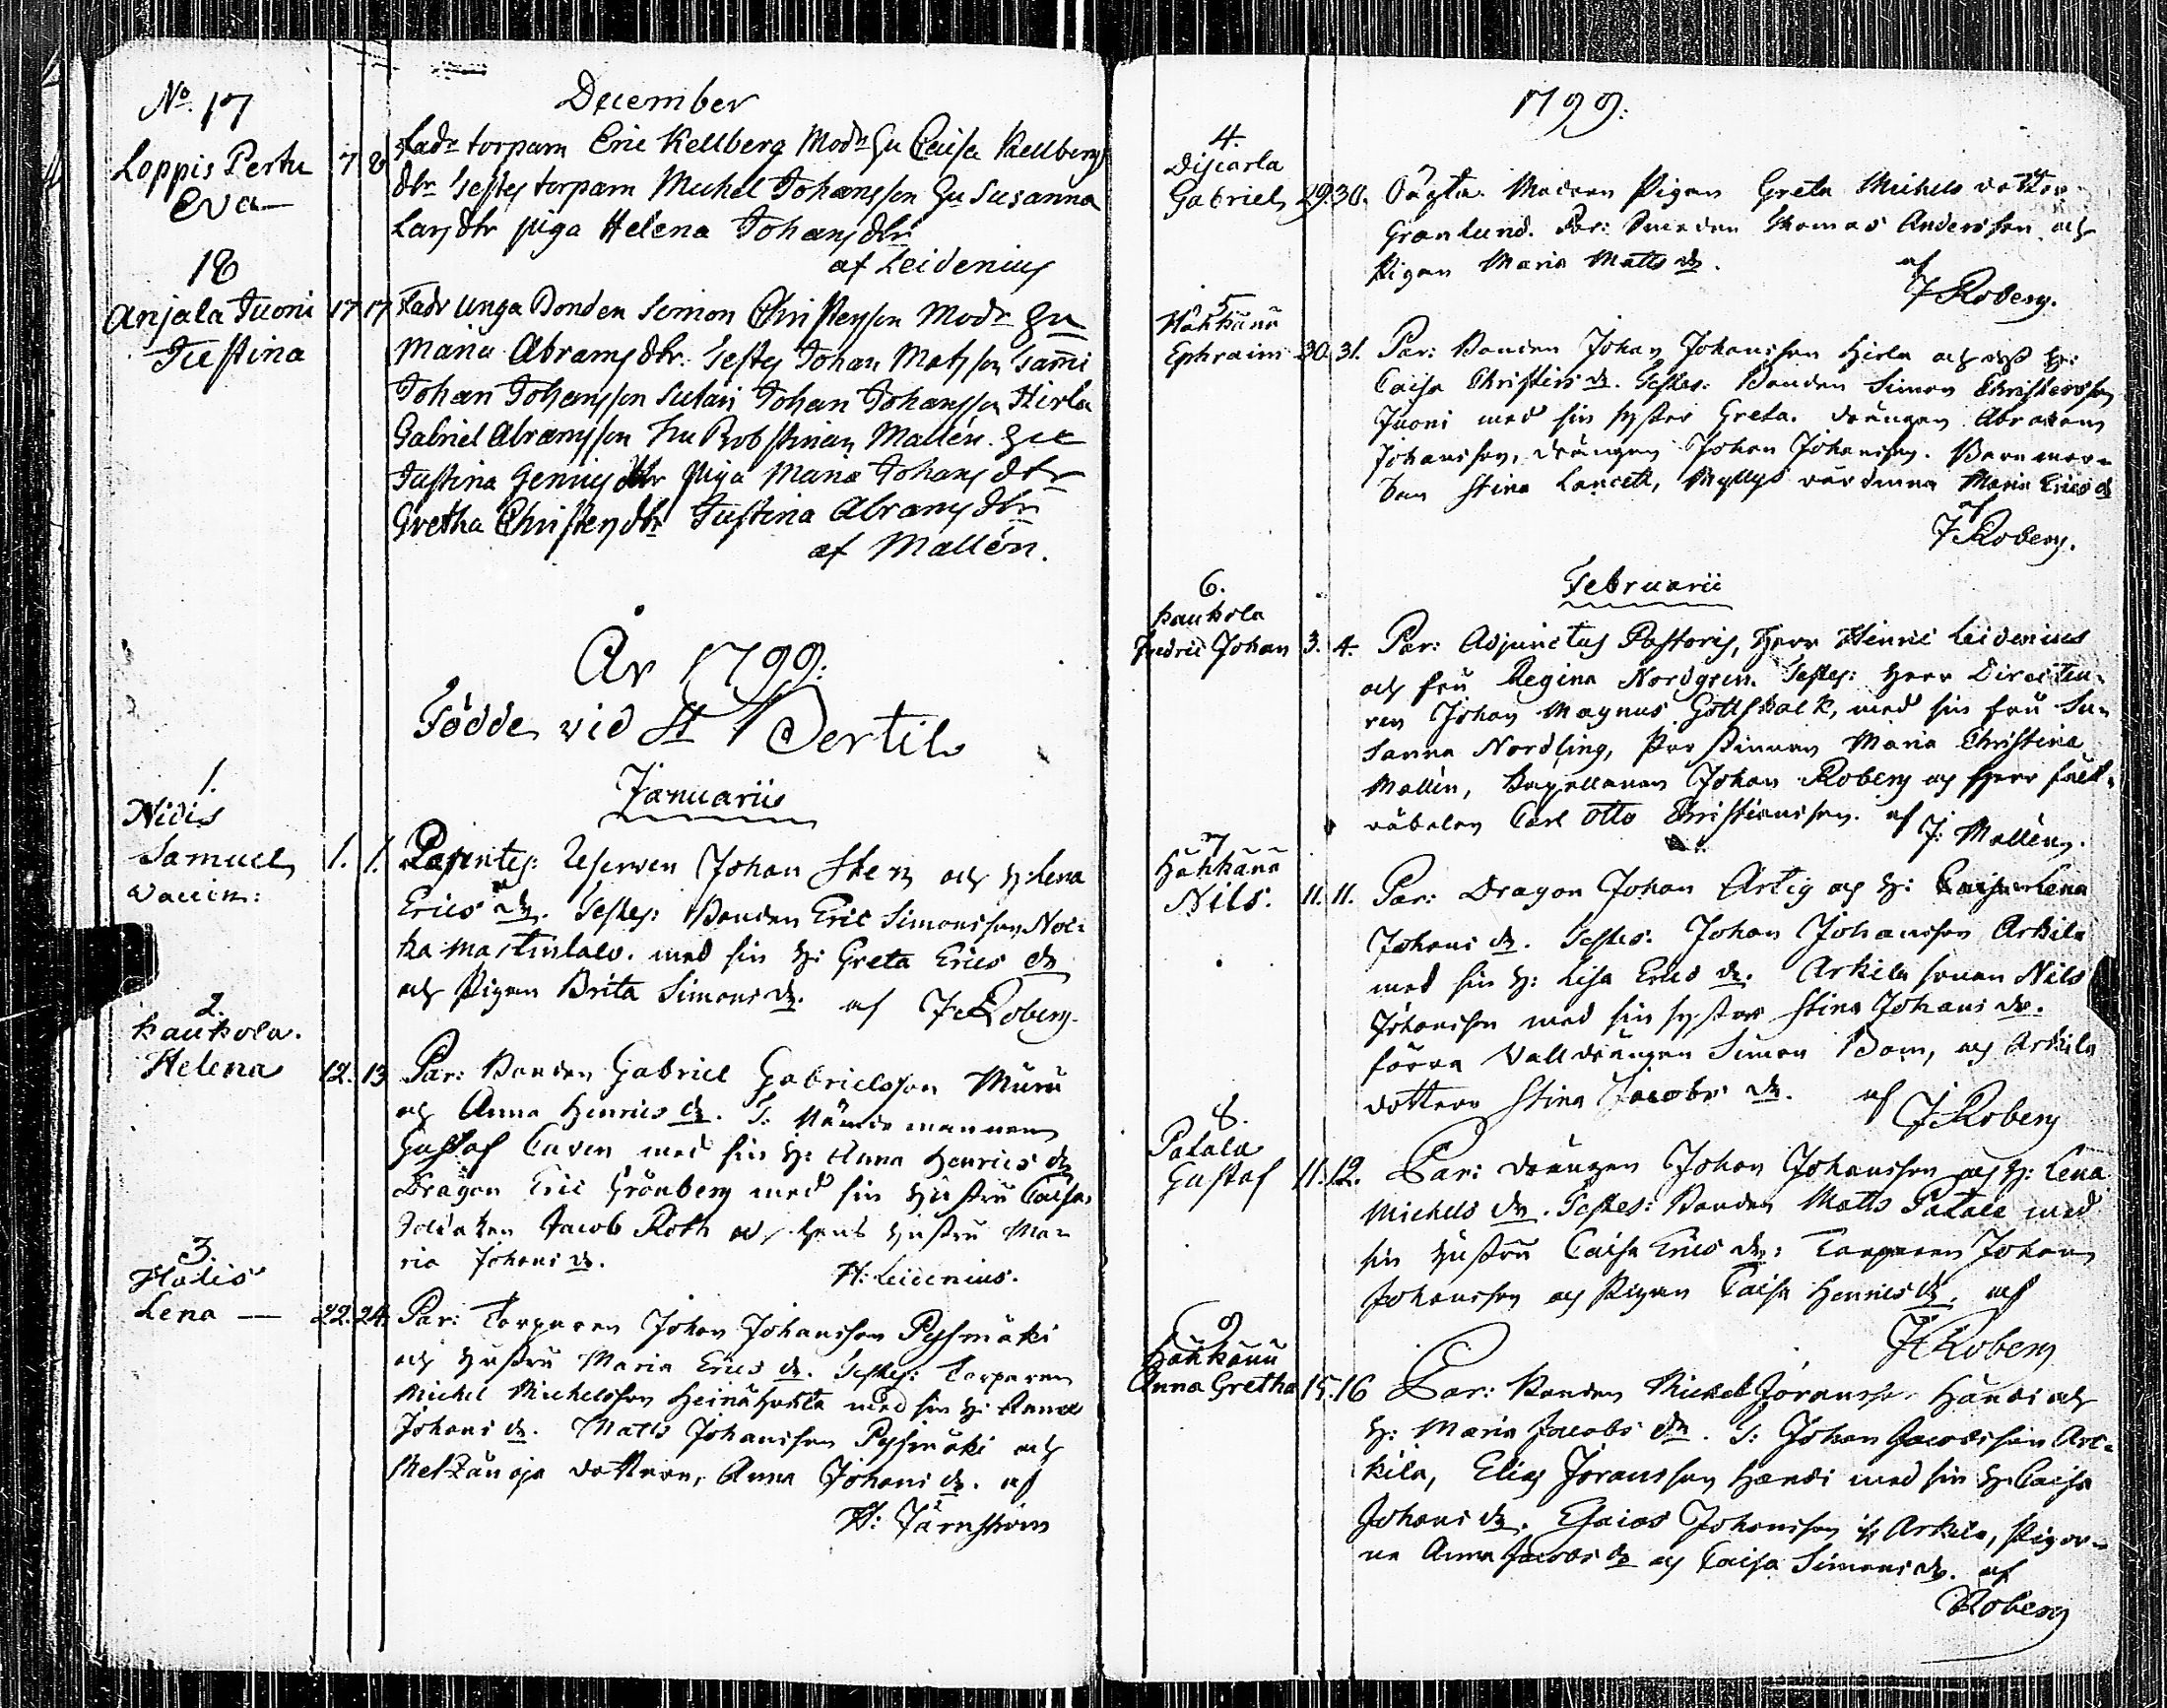 No. 17
December
Loppis Pertu
Eva
7 8
Fadr torparn Eric Kellberg Modr Hu Caisa Kellberg
dtr Testes torparn Michel Johansson Hu Susanna
Lars dtr piga Helena Johans dtr
af Leidenius
18
Anjala Juoni
Justina
17 17
Fadr unga Bonden Simon Christersson Modr Hu
Maria Abrams dtr. Testes Johan Matsson Sami
Johan Johansson Sutari Johan Johansson Hirla
Gabriel Abramsson Fru Probstinnan Mallén. Hu
Justina dtr piga Maria Johans dtr
Gretha Christers dtr Justina Abrams dtr
af Mallén.
År 1799.
Födde vid St Bertils
Januarii
1.
Nidis
Samuel
vaccin:
1. 1.
Parentes: Reserven Johan och H: Lena
Erics dr. Testes: Bonden Eric Simonsson Noc-
ka Martinlaco. med sin H: Greta Erics dr
och Pigan Brita Simons dr. af J: Roberg.
2.
Kaukola.
Helena
12. 13
Par: Bonden Gabriel Gabrielsson Muru
och Anna Henrics dr. T: Nämndemannen
Gustaf Caven med sin H: Anna Henrics dr
Dragon Eric Grönberg med sin Hustru Caisa
Soldaten Jacob Roth och hans Hustru Ma-
ria Johans dr.
H: Leidenius.
3.
Halis
Lena —
22. 24.
Par: Torparen Johan Johansson Pysmäki
och Hustru Maria Erics dr. Testes: Torparen
Michel Michelsson Heinähuhta med sin H: Anna
Johans dr. Matts Johansson Pysmäki och
Metzänoja dottern, Anna Johans dr. af
H: Järnström
1799.
4.
Discarla
Gabriel
29. 30.
Oägta. Modren Pigan Greta Michels dotter
Granlund. Smeden Thomas Andersson och
Pigan Maria Matts dr.
af
J Roberg.
5
Häkkänä
Ephraim
30. 31.
Par: Bonden Johan Johansson Hirla och dess H:
Caisa Christers dr. Testes: Bonden Simon Christersson
Juoni med sin syster Greta. Drängen Abraham
Johansson, drängen Johan Johansson. Barnmor-
skan Stina Lancett, Myllys värdinna Maria Erics dr
af
J Roberg.
Februarii
6.
Kaukola
Fredric Johan
3. 4.
Par: Adjunctus Pastoris, Herr Henric Leidenius
och fru Regina Nordgren. Testes: Herr Directeu-
ren Johan Magnus Gottskalk, med sin fru Su-
sanna Nordling, Prostinnan Maria Christina
Mallén, Kapellanen Johan Roberg och Herr fält-
väbelen Carl Otto Christiansson. af J: Mallén.
7
Häkkänä
Nils.
11. 11.
Par: Dragon Johan Artig och H: Caisa Lena
Johans dr. Testes: Johan Johansson Arkila
med sin H: Lisa Erics dr. Arkila sonen Nils
Johansson med sin syster Stina Johans dr.
förra Valldrängen Simon Bom, och Arkila
dottern Stina Jacobs dr. af
J Roberg
8.
Patala
Gustaf
11. 12.
Par: Drängen Johan Johansson och H: Lena
Michels dr. Testes: Bonden Matts Patala med
sin Hustru Caisa Erics dr: Torparen Johan
Johansson och Pigan Caisa Henrics dr. af
J Roberg
9
Häkkänä
Anna Gretha
15. 16
Par: Bonden Michel Jöransson Händi och
H: Maria Jacobs dr. T: Johan Jacobsson Ar-
kila, Elias Jöransson Händi med sin H: Caisa
Johans dr. Esaias Johansson Arkila, Pigor-
na Anna Jacobs dr och Caisa Simons dr. af
Roberg